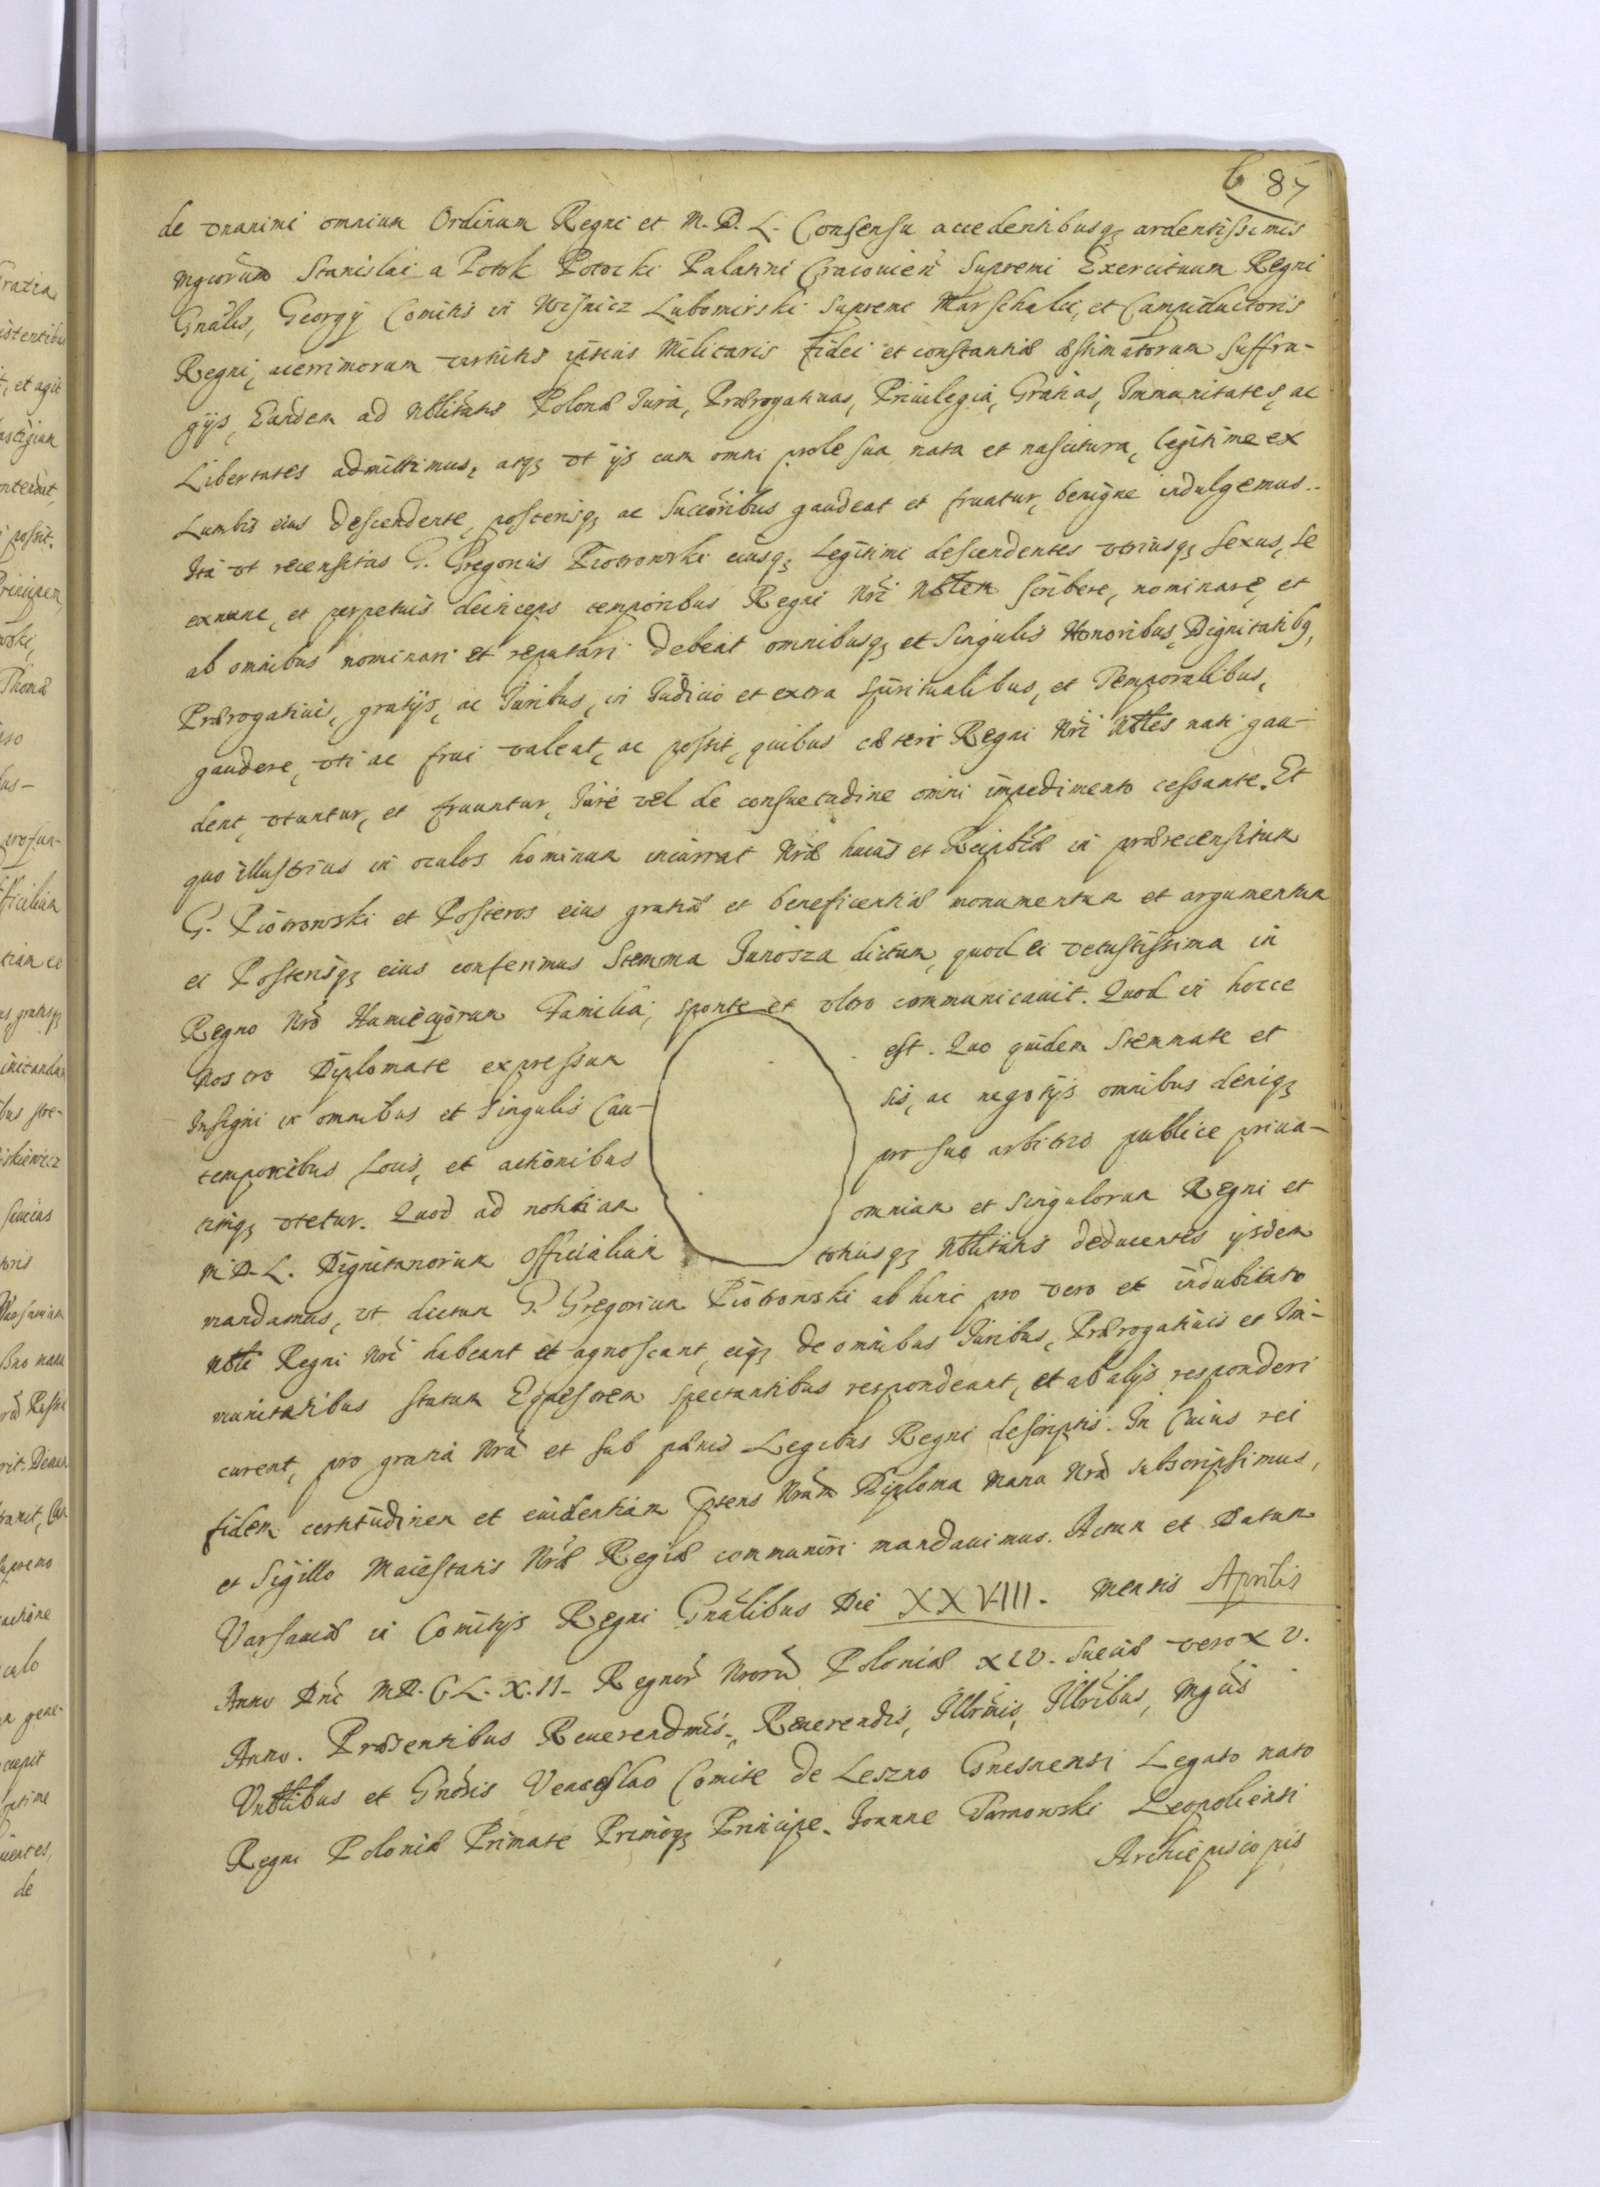 6 87
de vnanimi omnium Ordinum Regni et M. D. L. Consensu accedentibusq3 ardentissimis
Mgcorum Stanislai a Potok Potocki Palatini Cracouien Supremi Exercituum Regni
Gnalis, Georgy Comitis in Wisnicz Lubomirski Supremi Marschalci, et Campiductoris
Regni, acerrimorum virtutis Militaris fidei et constantiæ æstimatorum suffra-
gijs, Eundem ad Nblitatis Polonæ Jura, Prærogatiuas, Priuilegia, Gratias, Immunitates, ac
Libertates admittimus, atq3 vt ijs cum omni prole sua nata et nascitura, legitime ex
Lumbis eius descendente, posterisq3 ac Succoribus gaudeat et fruatur, benigne indulgemus.
Ita vt recensitus G. Gregorius Piotrowski eiusq3 Legitimi descendentes vtriusq3 sexus, se
exnunc, et perpetuis deinceps temporibus Regni Nri Nblem scribere, nominare, et
ab omnibus nominari et reputari debeat omnibusq3 et Singulis Honoribus, Dignitatibq,
Prærogatiuis, gratijs, ac Iuribus, in Iudicio et extra Spiritualibus, et Temporalibus,
gaudere, vti ac frui valeat, ac possit, quibus cæteri Regni Nri Nbles nati gau-
dent, vtuntur, et fruuntur, Iure vel de consuetudine omni impedimento cessante. Et
quo illustrius in oculos hominum incurrat Nræ huius et Reipblæ in prærecensitum
G. Piotrowski et Posteros eius gratiæ et beneficentiæ monumentum et argumentum
ei Posterisq3 eius conferimus Stemma Junosza dictum, quod ei vetustissima in
Regno Nro Humiecijorum Familia, sponte et vltro communicauit. Quod in hocce
nostro Diplomate expressum est. Quo quidem Stemmate et
Insigni in omnibus et Singulis Cau- sis, ac negotijs omnibus deniq3
temporibus Locis, et actionibus pro suo arbitrio publice priua-
timq3 vtetur. Quod ad notitiam omnium et Singulorum Regni et
M. D. L. Dignitariorum Officialium totiusq3 Nblitatis deducentes ijsdem
mandamus, vt dictum G. Gregorium Piotrowski abhinc pro vero et indubitato
Nbli Regni Nri habeant et agnoscant, eiq3 de omnibus Iuribus, Prærogatiuis et Im-
munitatibus statum Equestrem spectantibus respondeant, et ab alijs responderi
curent, pro gratia Nra et sub pænis Legibus Regni descriptis. In Cuius rei
fidem certitudinem et euidentiam Ptens Nrum Diploma Manu Nra subscripsimus,
et Sigillo Maiestatis Nræ Regiæ communiri mandauimus. Actum et Datum
Varsauiæ in Comitijs Regni Gnalibus Die XXVIII. mensis Aprilis
Anno Dni MD.CL.X.II. Regnor Nroru Poloniæ XIV. Sueciæ vero XV.
Anno. Præsentibus Reuerendmis, Reuerendis, Illrmis, Illribus, Mgcis
Vnblibus et Gnosis Venceslao Comite de Leszno Gnesnensi Legato nato
Regni Poloniæ Primate Primoq3 Principe. Ioanne Tarnowski Leopoliensi
Archiepiscopis